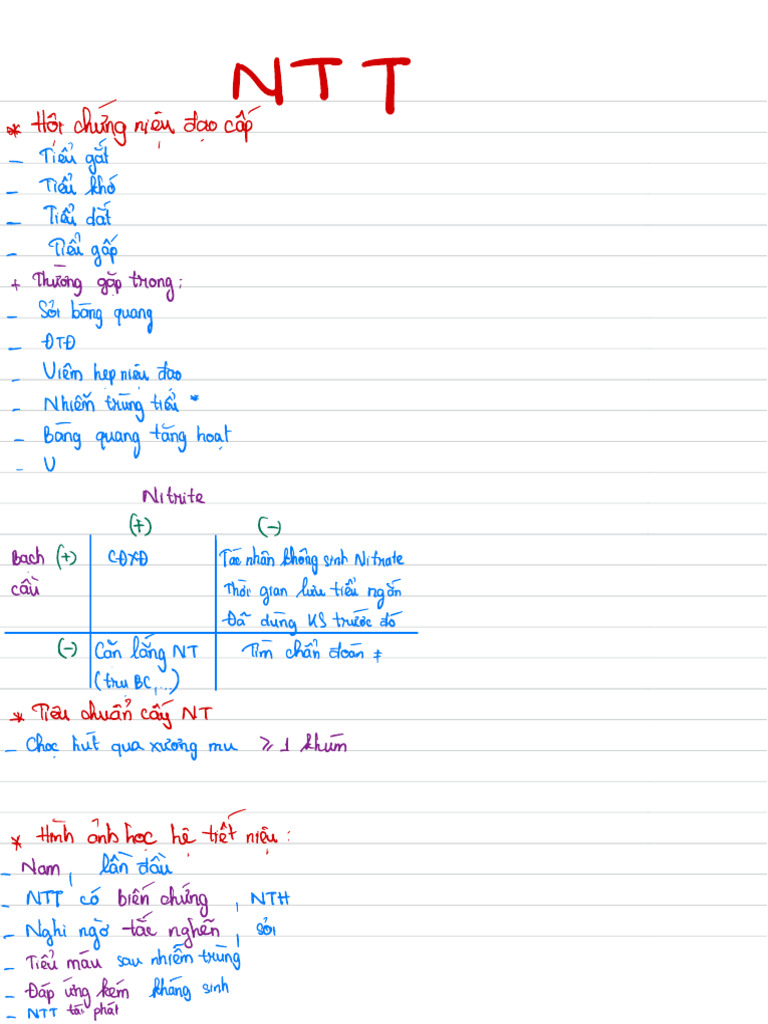 NTT
* Hội chứng niệu đạo cấp
- Tiểu gắt
- Tiểu khó
- Tiểu dắt
- Tiểu gấp
+ Thường gặp trong:
- Sỏi bàng quang
- ĐTĐ
- Viêm hẹp niệu đạo
- Nhiễm trùng tiểu *
- Bàng quang tăng hoạt
- U
Nitrite
(+) (-)
Bạch cầu (+) CĐXĐ
Tác nhân không sinh Nitrate
Thời gian lưu tiểu ngắn
Đã dùng KS trước đó
(-) Cặn lắng NT
(trụ BC,...)
Tìm chẩn đoán ≠
* Tiêu chuẩn cấy NT
- Chọc hút qua xương mu ≥ 1 khúm
* Hình ảnh học hệ tiết niệu:
- Nam, lần đầu
- NTT có biến chứng, NTH
- Nghi ngờ tắc nghẽn, sỏi
- Tiểu máu sau nhiễm trùng
- Đáp ứng kém kháng sinh
- NTT tái phát